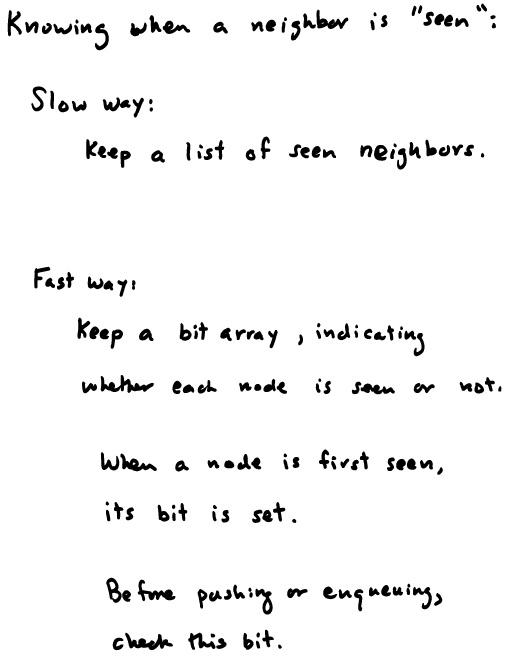 Knowing when a neighbor is "seen":
Slow way:
Keep a list of seen neighbors.
Fast way:
Keep a bit array, indicating
whether each node is seen or not.
When a node is first seen,
its bit is set.
Before pushing or enqueuing,
check this bit.